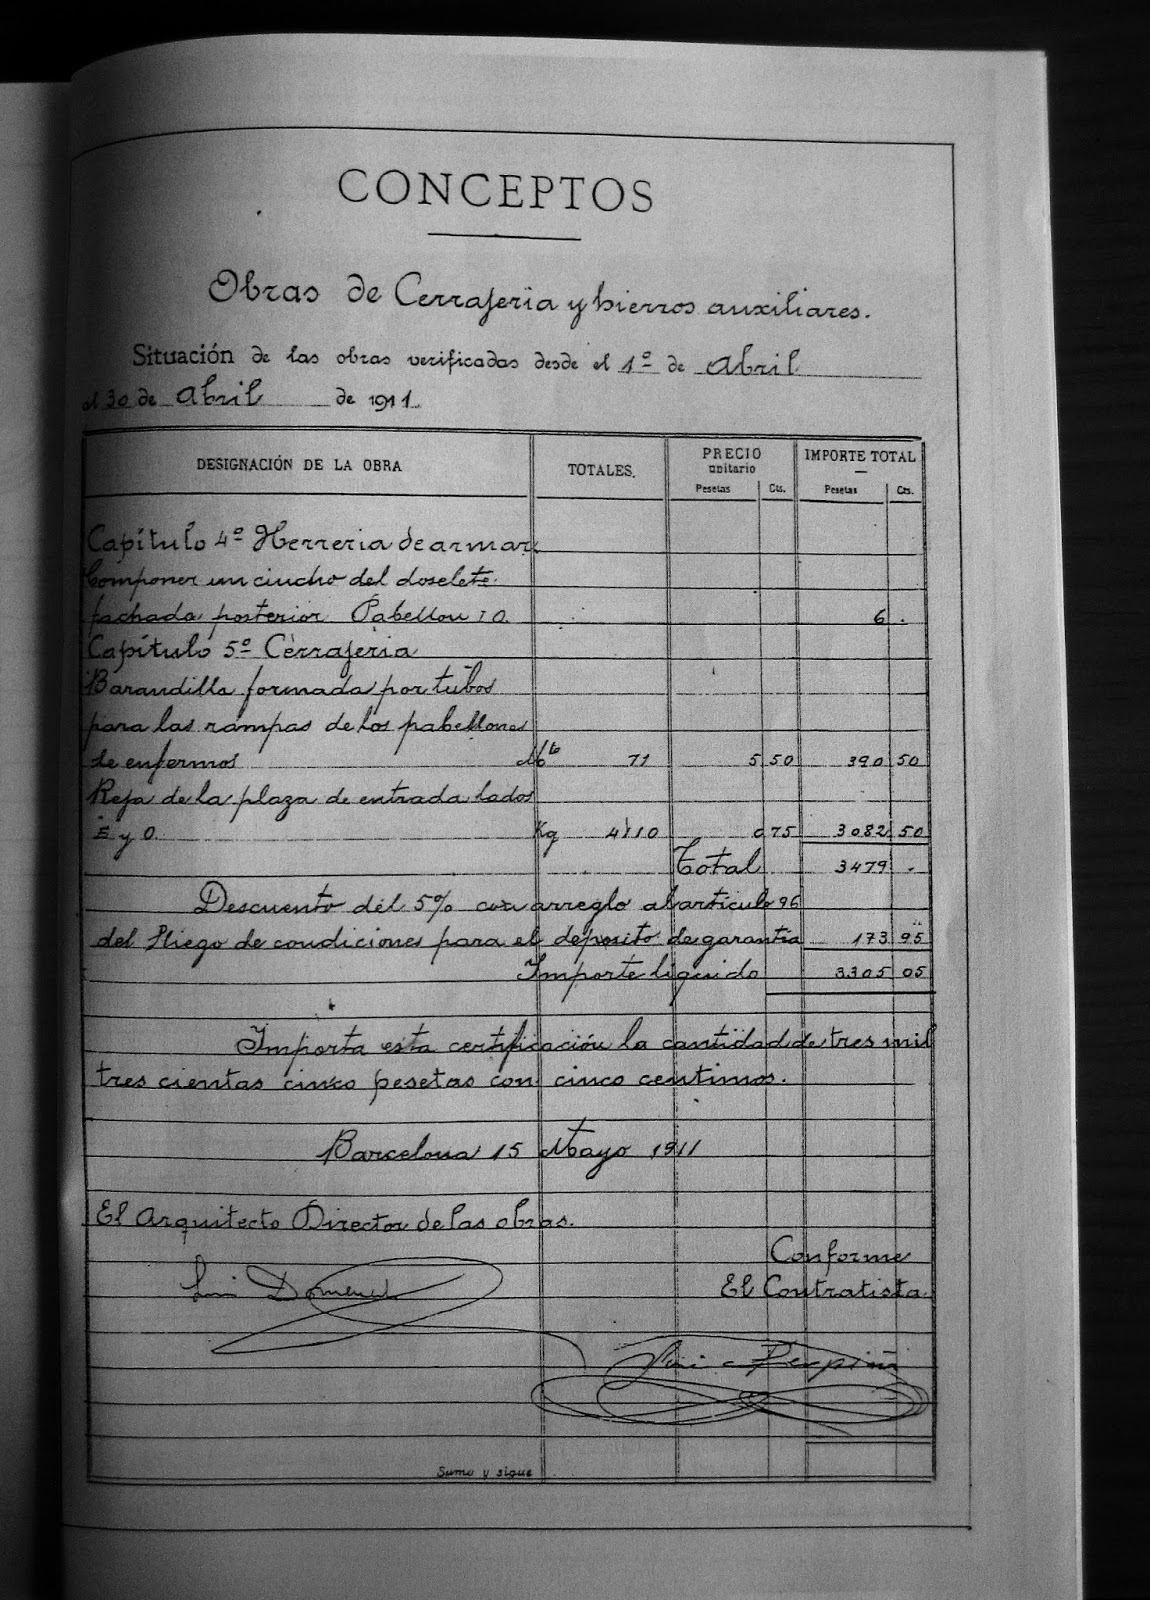 CONCEPTOS
Obras de Cerrajeria y hierros auxiliares.
Situación de las obras verificadas desde el 1º de Abril
al 30 de Abril de 1911.
DESIGNACIÓN DE LA OBRA TOTALES. PRECIO unitario IMPORTE TOTAL
Pesetas Cts. Pesetas Cts.
Capítulo 4º Herreria de armar.
Componer un ciucho del doselete
fachada posterior Pabellon 6 .
Capítulo 5º Cerrajeria
Barandilla formada por tubos
para las rampas de los pabellones
de enfermos 71 5 50 390 50
Reja de la plaza de entrada lados
E y O. Kg 4110 0 75 3082 50
Total 3479 .
Descuento del 5% con arreglo al artículo 96
del Pliego de condiciones para el deposito de garantia 173 95
Importe liquido 3305 05
Importa esta certificación la cantidad de tres mil
tres cientas cinco pesetas con cinco centimos.
Barcelona 15 Mayo 1911
El Arquitecto Director de las obras.
Conforme
Luis Domenech
El Contratista
Perpiñá
Suma y sigue